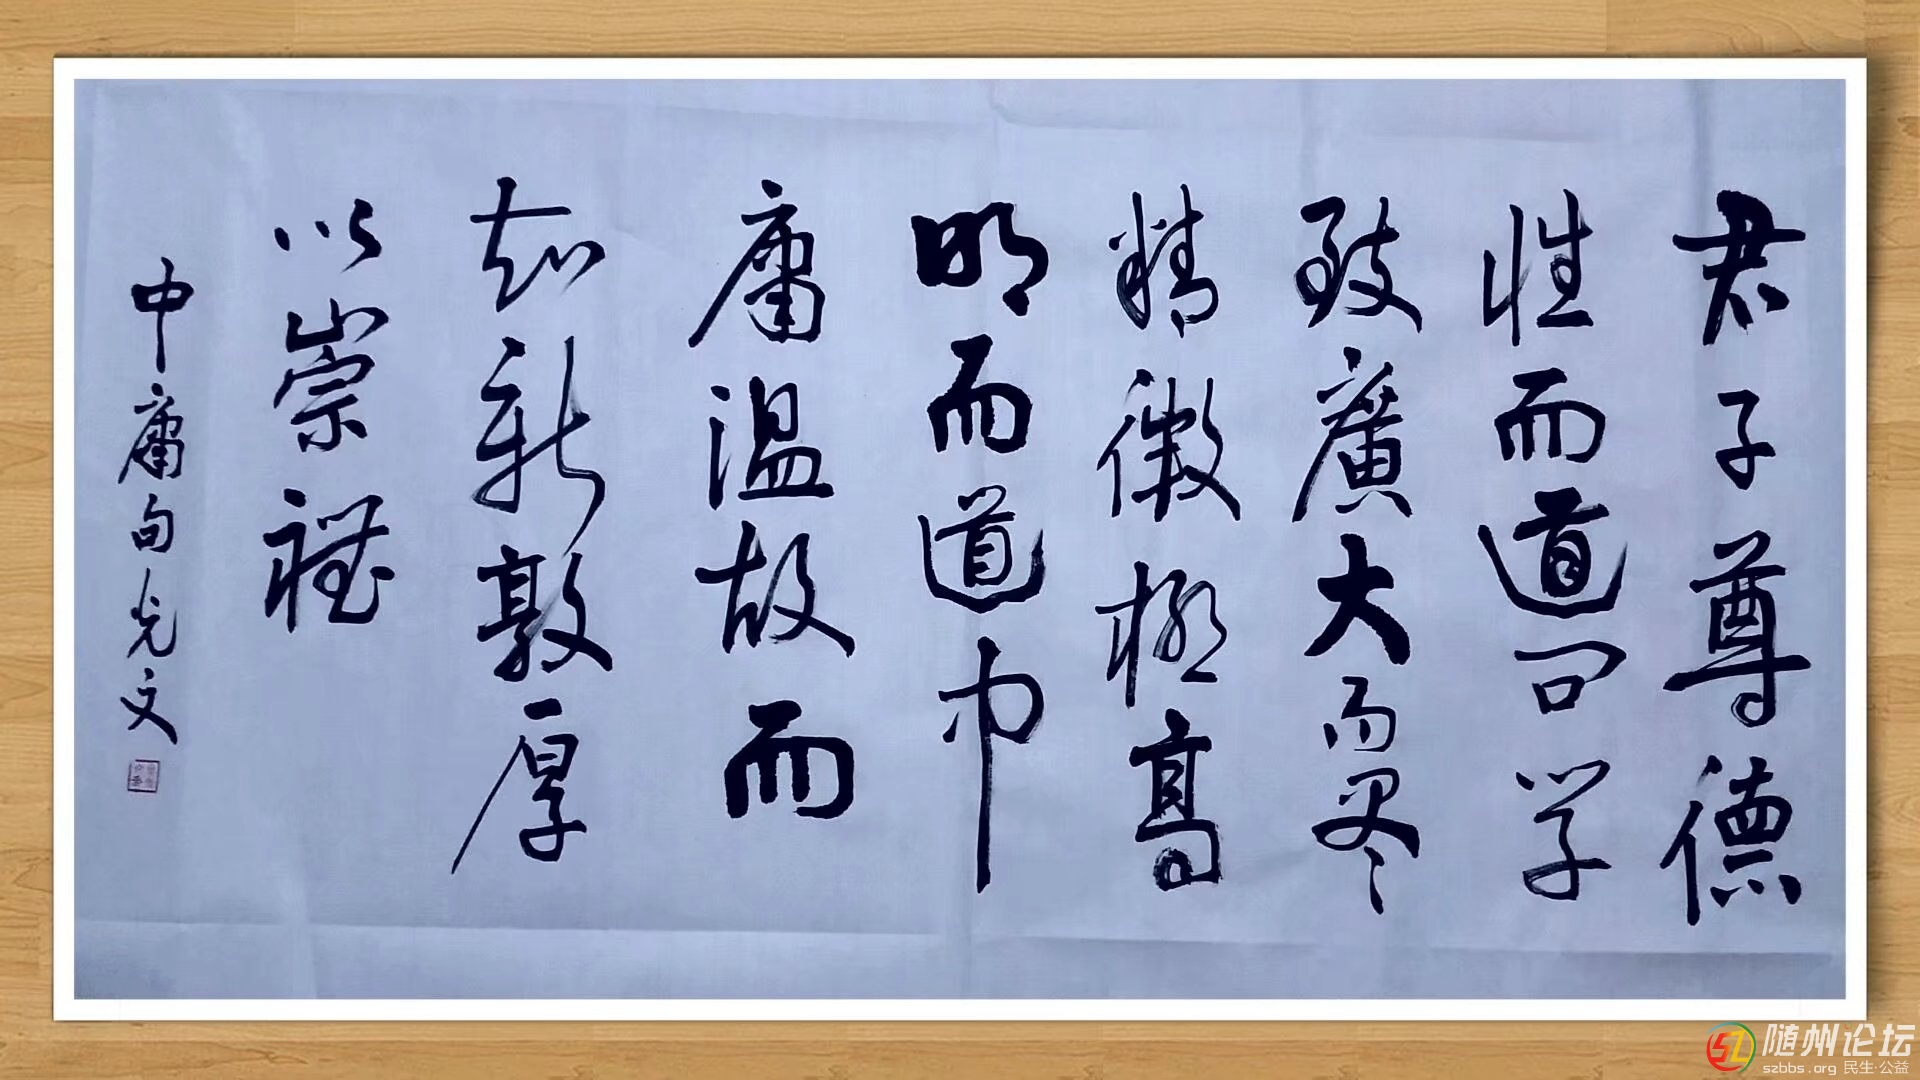 君子尊德
性而道问学
致廣大而尽
精微極高
明而道中
庸温故而
知新敦厚
以崇禮
中庸句光文
随州论坛
szbbs.org 民生·公益